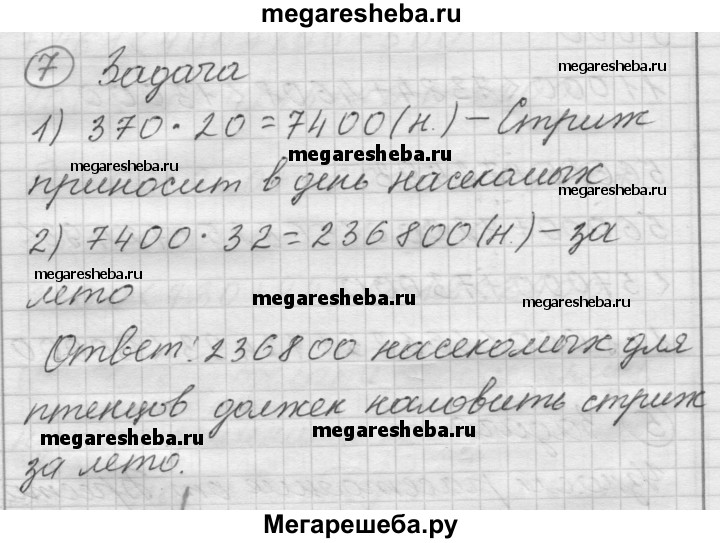 megaresheba.ru
7 Задача
megaresheba.ru
1) 370 · 20 = 7400 (н.) – Стриж
megaresheba.ru
megaresheba.ru
приносит в день насекомых
megaresheba.ru
2) 7400 · 32 = 236800 (н.) – за
megaresheba.ru
megaresheba.ru
megaresheba.ru
лето
Ответ: 236800 насекомых для
птенцов должен наловить стриж
megaresheba.ru
megaresheba.ru
за лето.
Мегарешеба.ру